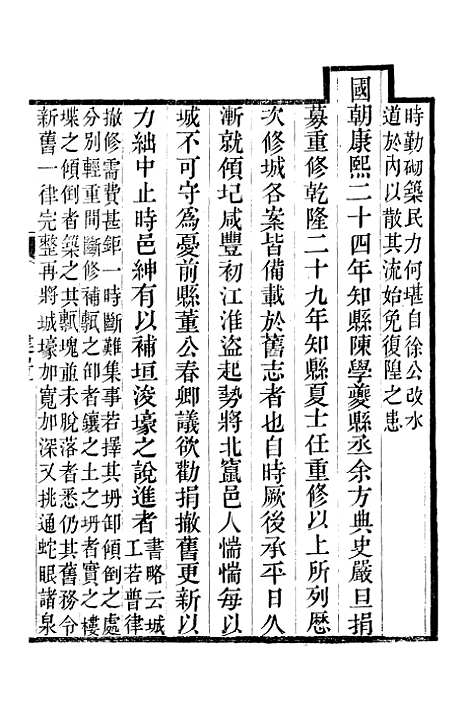 時勤砌築民力何堪自徐公改水
道於內以散其流始免復隍之患
國朝康熙二十四年知縣陳學夔縣丞余方典史嚴旦捐
募重修乾隆二十九年知縣夏士任重修以上所列歷
次修城各案皆備載於舊志者也自時厥後承平日久
漸就傾圮咸豐初江淮盜起勢將北竄邑人惴惴每以
城不可守為憂前縣董公春卿議欲勸捐撤舊更新以
力絀中止時邑紳有以補垣浚壕之說進者
書略云城
工若普律
撤修需費甚鉅一時斷難集事若擇其坍卸傾倒之處
分別輕重間斷修補甎之卸者鑲之土之坍者實之樓
堞之傾倒者築之其甎塊並未脫落者悉仍其舊務令
新舊一律完整再將城壕加寬加深又挑通蛇眼諸泉